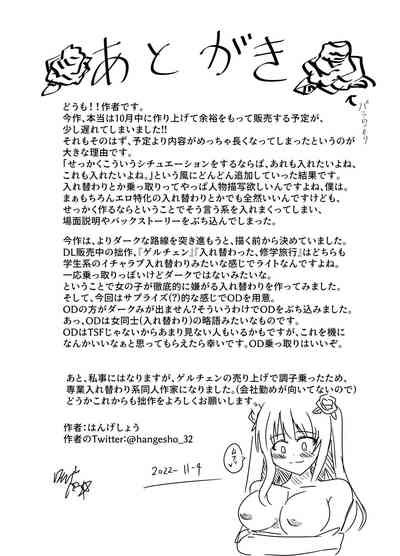 あとがき
バラのつもり
どうも!!作者です。
今作、本当は10月中に作り上げて余裕をもって販売する予定が、
少し遅れてしまいました!!
それもそのはず、予定より内容がめっちゃ長くなってしまったというのが
大きな理由です。
「せっかくこういうシチュエーションをするならば、あれも入れたいよね、
これも入れたいよね。」という風にどんどん追加していった結果です。
入れ替わりとか乗っ取りってやっぱ人物描写欲しいんですよね、僕は。
まぁもちろんエロ特化の入れ替わりとかでも全然いいんですけども、
せっかく作るならということでそう言う系を入れまくってしまい、
場面説明やバックストーリーをぶち込んでしまった。
今作は、よりダークな路線を突き進もうと、描く前から決めていました。
DL販売中の拙作、『ゲルチェン』、『入れ替わった、修学旅行』はどちらも
学生系のイチャラブ入れ替わりみたいな感じでライトなんですよね。
一応乗っ取りっぽいけどダークではないみたいな。
ということで女の子が徹底的に嫌がる入れ替わりを作ってみました。
そして、今回はサプライズ(?)的な感じでODを用意。
ODの方がダークみが出ません?そういうわけでODをぶち込みました。
あっ、ODは女同士(入れ替わり)の略語みたいなものです。
ODはTSFじゃないからあまり見ない人もいるかもですが、これを機に
なんかいいなぁと思ってもらえたら幸いです。OD乗っ取りはいいぞ。
あと、私事にはなりますが、ゲルチェンの売り上げで調子乗ったため、
専業入れ替わり系同人作家になりました。(会社勤めが向いてないので)
どうかこれからも拙作をよろしくお願いします。
作者:はんげしょう
作者のTwitter:@hangesho_32
2022-11-4